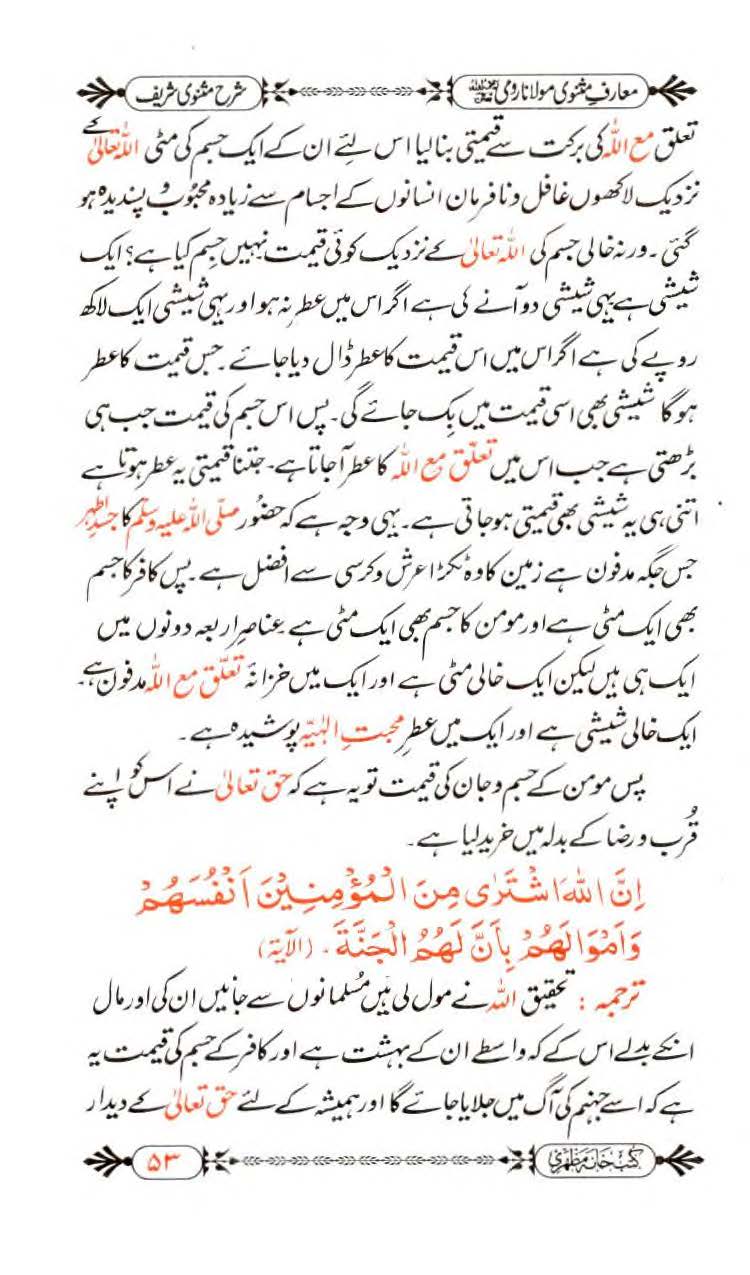 معارفِ مثنوی مولانا رومیؒ شرح مثنوی شریف
تعلق مع اللہ کی برکت سے قیمتی بنا لیا اس لئے ان کے ایک جسم کی مٹی اللہ تعالیٰ کے
نزدیک لاکھوں غافل و نافرمان انسانوں کے اجسام سے زیادہ محبوب و پسندیدہ ہو
گئی۔ ورنہ خالی جسم کی اللہ تعالیٰ کے نزدیک کوئی قیمت نہیں جسم کیا ہے؟ ایک
شیشی ہے یہی شیشی دو آنے کی ہے اگر اس میں عطر نہ ہو اور یہی شیشی ایک لاکھ
روپے کی ہے اگر اس میں اس قیمت کا عطر ڈال دیا جائے۔ جس قیمت کا عطر
ہوگا شیشی بھی اسی قیمت میں بِک جائے گی۔ پس اس جسم کی قیمت جب ہی
بڑھتی ہے جب اس میں تعلّق مع اللہ کا عطر آجاتا ہے۔ جتنا قیمتی یہ عطر ہوتا ہے
اتنی ہی یہ شیشی بھی قیمتی ہوجاتی ہے۔ یہی وجہ ہے کہ حضُور صلّی اللہ علیہ وسلّم کا جسدِ اطہر
جس جگہ مدفون ہے زمین کا وہ ٹکڑا عرش و کرسی سے افضل ہے۔ پس کافر کا جسم
بھی ایک مٹی ہے اور مومن کا جسم بھی ایک مٹی ہے عناصرِ اربعہ دونوں میں
ایک ہی ہیں لیکن ایک خالی مٹی ہے اور ایک میں خزانۂ تعلّق مع اللہ مدفون ہے۔
ایک خالی شیشی ہے اور ایک میں عطرِ محبتِ الٰہیّہ پوشیدہ ہے۔
پس مومن کے جسم و جان کی قیمت تو یہ ہے کہ حق تعالیٰ نے اس کو اپنے
قُرب و رضا کے بدلہ میں خرید لیا ہے۔
اِنَّ اللّٰهَ اشْتَرٰى مِنَ الْمُؤْمِنِيْنَ اَنْفُسَهُمْ
وَاَمْوَالَهُمْ بِاَنَّ لَهُمُ الْجَنَّةَ۔ (الآیۃ)
ترجمہ : تحقیق اللہ نے مول لی ہیں مُسلمانوں سے جانیں ان کی اور مال
انکے بدلے اس کے کہ واسطے ان کے بہشت ہے اور کافر کے جسم کی قیمت یہ
ہے کہ اسے جہنم کی آگ میں جلایا جائے گا اور ہمیشہ کے لئے حق تعالیٰ کے دیدار
کتب خانہ مظہری ۵۳